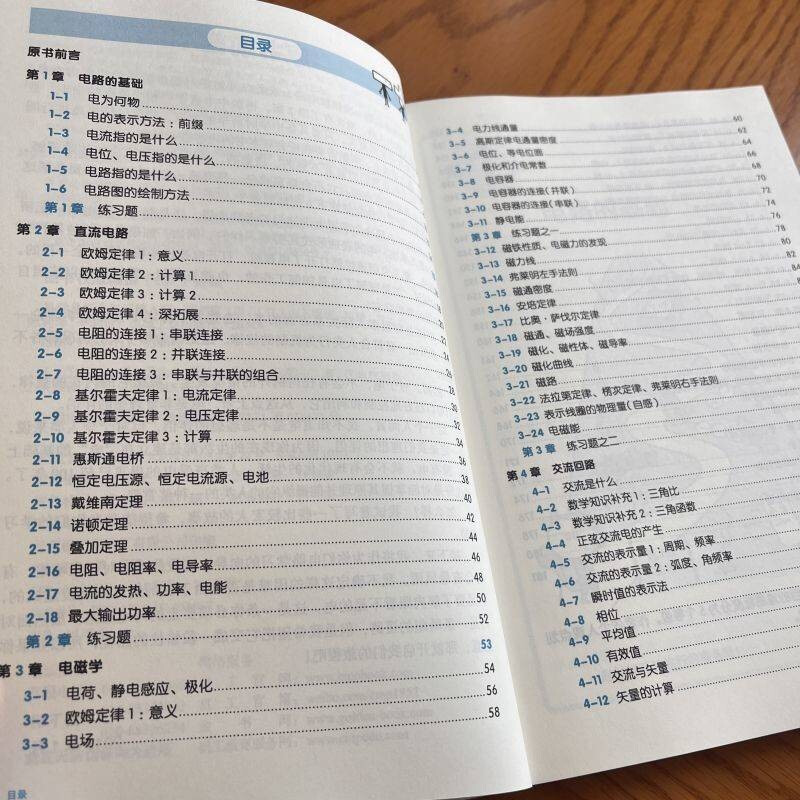 目录
原书前言
第1章 电路的基础
1-1 电为何物
1-2 电的表示方法：前缀
1-3 电流指的是什么
1-4 电位、电压指的是什么
1-5 电路指的是什么
1-6 电路图的绘制方法
第1章 练习题
第2章 直流电路
2-1 欧姆定律1：意义
2-2 欧姆定律2：计算1
2-3 欧姆定律3：计算2
2-4 欧姆定律4：深拓展
2-5 电阻的连接1：串联连接
2-6 电阻的连接2：并联连接
2-7 电阻的连接3：串联与并联的组合
2-8 基尔霍夫定律1：电流定律 28
2-9 基尔霍夫定律2：电压定律 30
2-10 基尔霍夫定律3：计算 32
2-11 惠斯通电桥 36
2-12 恒定电压源、恒定电流源、电池 38
2-13 戴维南定理 40
2-14 诺顿定理 42
2-15 叠加定理 44
2-16 电阻、电阻率、电导率 46
2-17 电流的发热、功率、电能 48
2-18 最大输出功率 50
第2章 练习题 52
第3章 电磁学 53
3-1 电荷、静电感应、极化 54
3-2 欧姆定律1：意义 56
3-3 电场 58
目录
3-4 电力线通量 60
3-5 高斯定律电通量密度 62
3-6 电位、等电位面 64
3-7 极化和介电常数 66
3-8 电容器 68
3-9 电容器的连接（并联） 70
3-10 电容器的连接（串联） 72
3-11 静电能 74
第3章 练习题之一 76
3-12 磁铁性质、电磁力的发现 78
3-13 磁力线 80
3-14 弗莱明左手法则 82
3-15 磁通密度 84
3-16 安培定律
3-17 比奥·萨伐尔定律
3-18 磁通、磁场强度
3-19 磁化、磁性体、磁导率
3-20 磁化曲线
3-21 磁路
3-22 法拉第定律、楞次定律、弗莱明右手法则
3-23 表示线圈的物理量（自感）
3-24 电磁能
第3章 练习题之二
第4章 交流回路
4-1 交流是什么
4-2 数学知识补充1：三角比
4-3 数学知识补充2：三角函数
4-4 正弦交流电的产生
4-5 交流的表示量1：周期、频率
4-6 交流的表示量2：弧度、角频率
4-7 瞬时值的表示法
4-8 相位
4-9 平均值
4-10 有效值
4-11 交流与矢量
4-12 矢量的计算